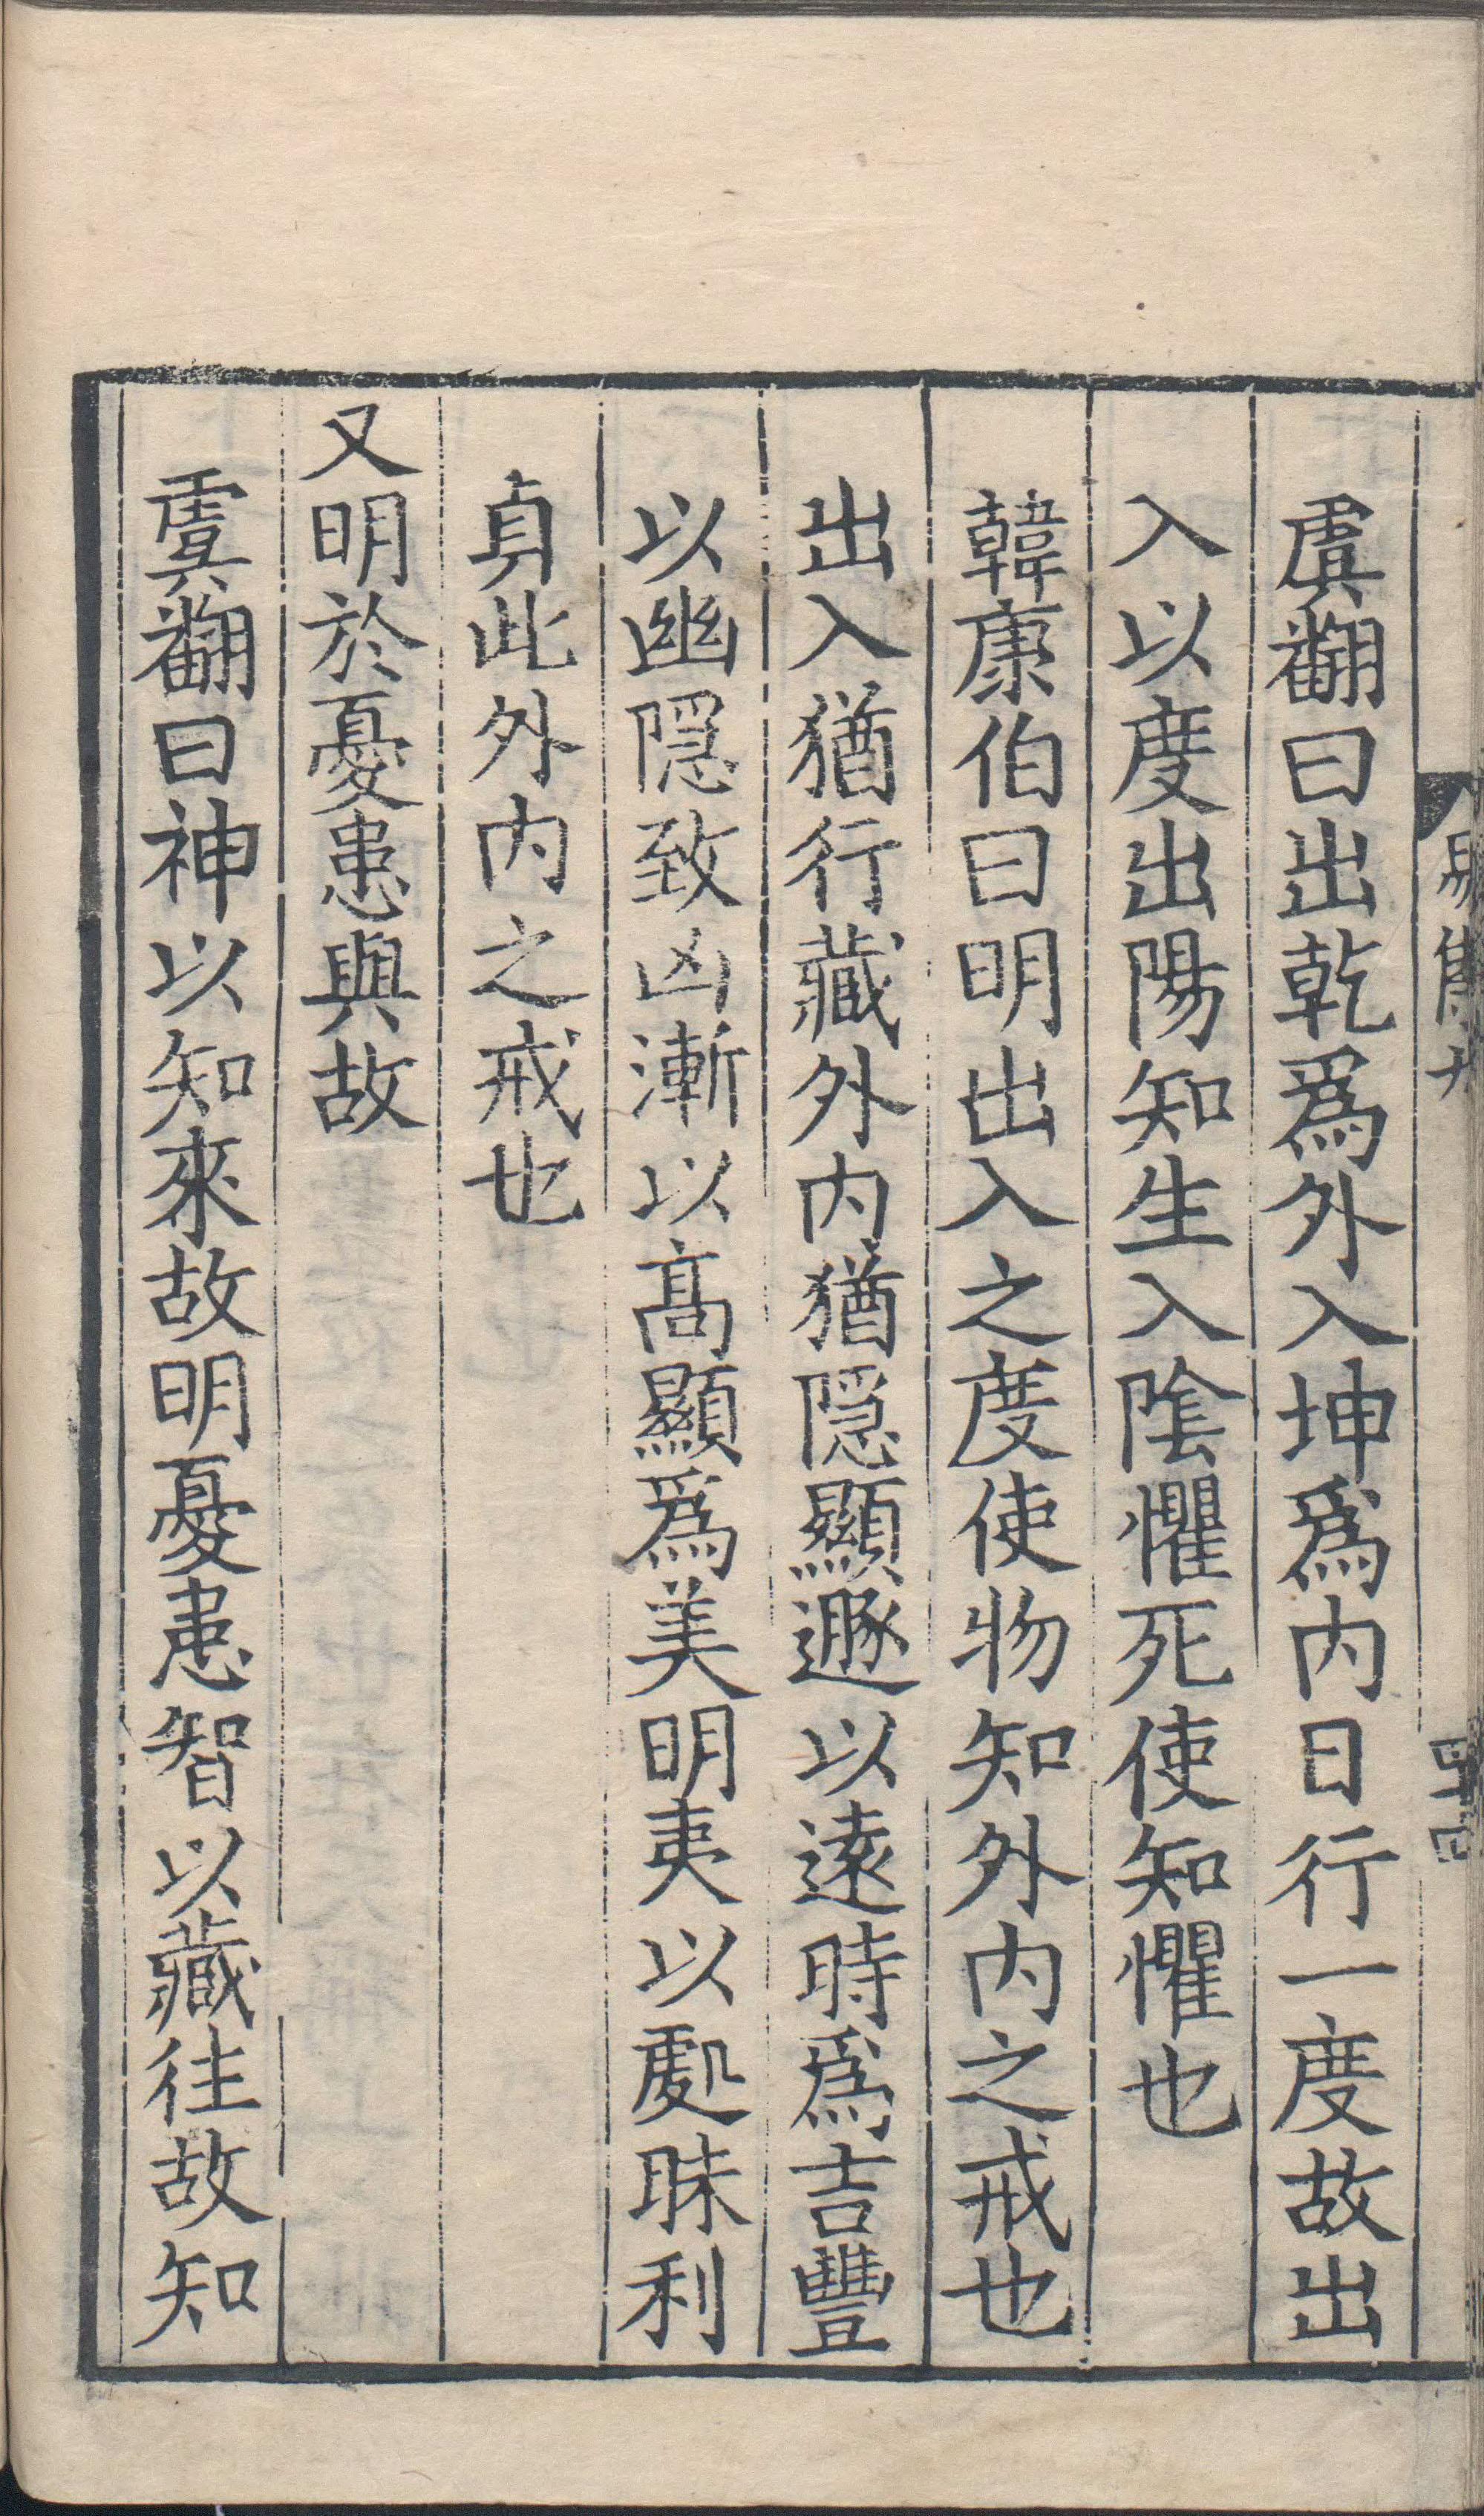 虞翻曰出乾爲外入坤爲内日行一度故出
入以度出陽知生入陰懼死使知懼也
韓康伯曰明出入之度使物知外内之戒也
出入猶行藏外内猶隠顯遯以遠時爲吉豐
以幽隠致凶漸以高顯爲美明夷以處昧利
貞此外内之戒也
又明於憂患與故
虞翻曰神以知來故明憂患智以藏往故知